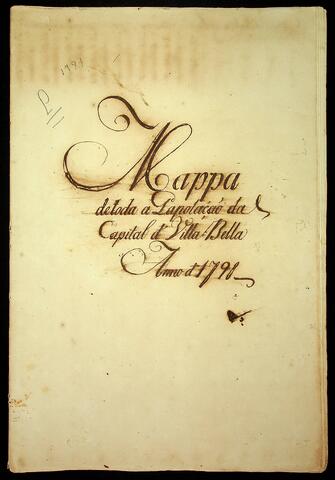 1791
Mappa
de toda a Papolaçaõ da
Capital d Villa-Bella
Anno d 1791